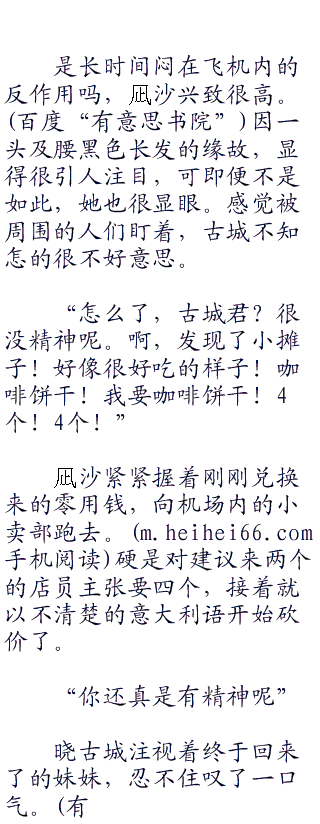 是长时间闷在飞机内的
反作用吗，凪沙兴致很高。
(百度“有意思书院”)因一
头及腰黑色长发的缘故，显
得很引人注目，可即便不是
如此，她也很显眼。感觉被
周围的人们盯着，古城不知
怎的很不好意思。
“怎么了，古城君？很
没精神呢。啊，发现了小摊
子！好像很好吃的样子！咖
啡饼干！我要咖啡饼干！4
个！4个！”
凪沙紧紧握着刚刚兑换
来的零用钱，向机场内的小
卖部跑去。(m.heihei66.com
手机阅读)硬是对建议来两个
的店员主张要四个，接着就
以不清楚的意大利语开始砍
价了。
“你还真是有精神呢”
晓古城注视着终于回来
了的妹妹，忍不住叹了一口
气。(有